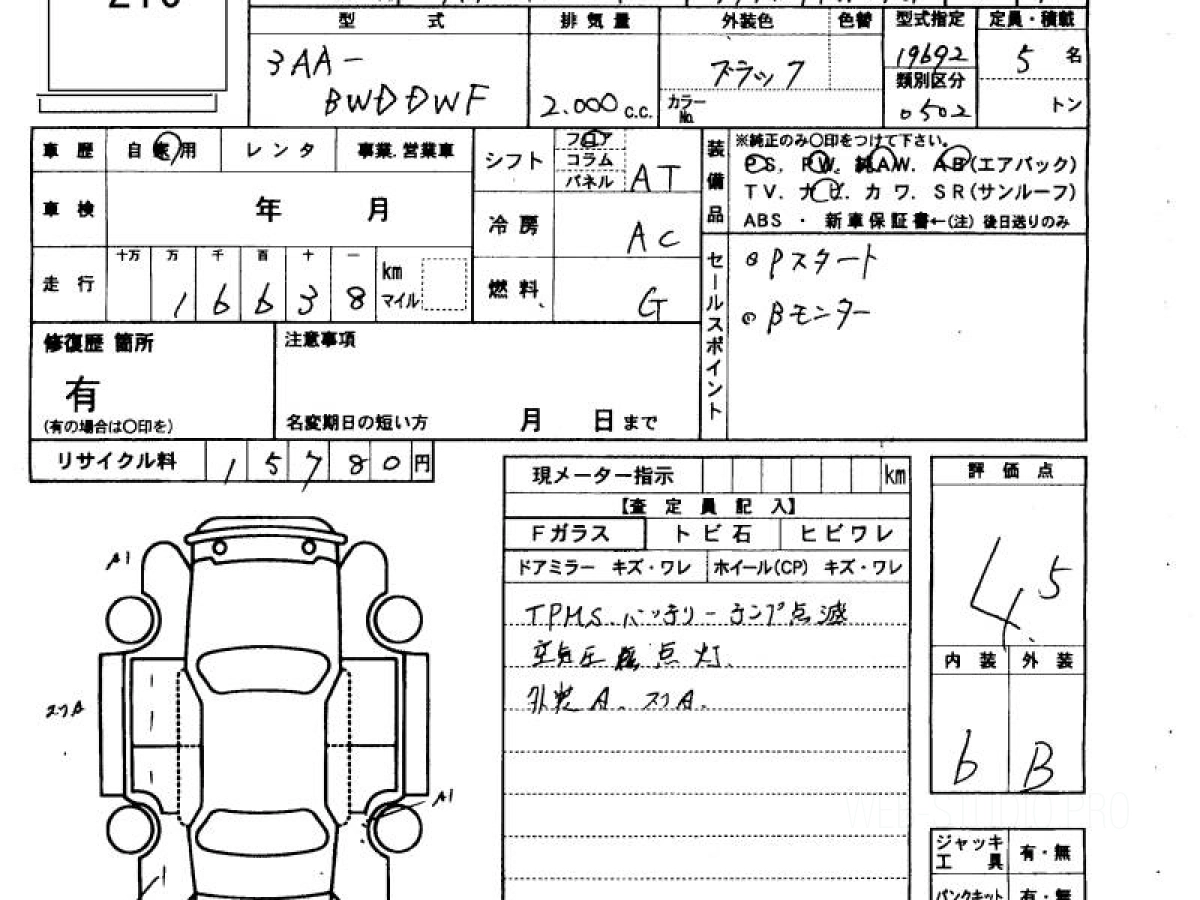 型 式 排 気 量 外装色 色替 型式指定 定員・積載
3AA-
BWDDWF
2.000 c.c.
ブラック
カラーNo.
19692
類別区分
0502
5 名
トン
車 歴 自家用 レ ン タ 事業.営業車
シフト フロア
コラム
パネル
AT
車 検 年 月
冷 房 AC
走 行 十万 万 千 百 十 一
1 6 6 3 8 km
マイル
燃 料 G
装備品
※純正のみ〇印をつけて下さい。
PS. PW. 純AW. AB(エアバック)
TV. ナビ. カワ. SR(サンルーフ)
ABS ・ 新車保証書←(注) 後日送りのみ
セールスポイント
Pスタート
Bモンター
修復歴 箇所
有
(有の場合は〇印を)
注意事項
名変期日の短い方 月 日 まで
リサイクル料 1 5 7 8 0 円
現メーター指示 km
【査 定 員 記 入】
Fガラス トビ石 ヒビワレ
ドアミラー キズ・ワレ ホイール(CP) キズ・ワレ
TPMS.バッテリーランプ点滅
空気圧 点灯.
外装A. スリA.
評 価 点
4.5
内 装 外 装
b B
A1
スリA
A1
WEB STUDIO PRO
ジャッキ
工 具 有・無
パンクキット 有・無